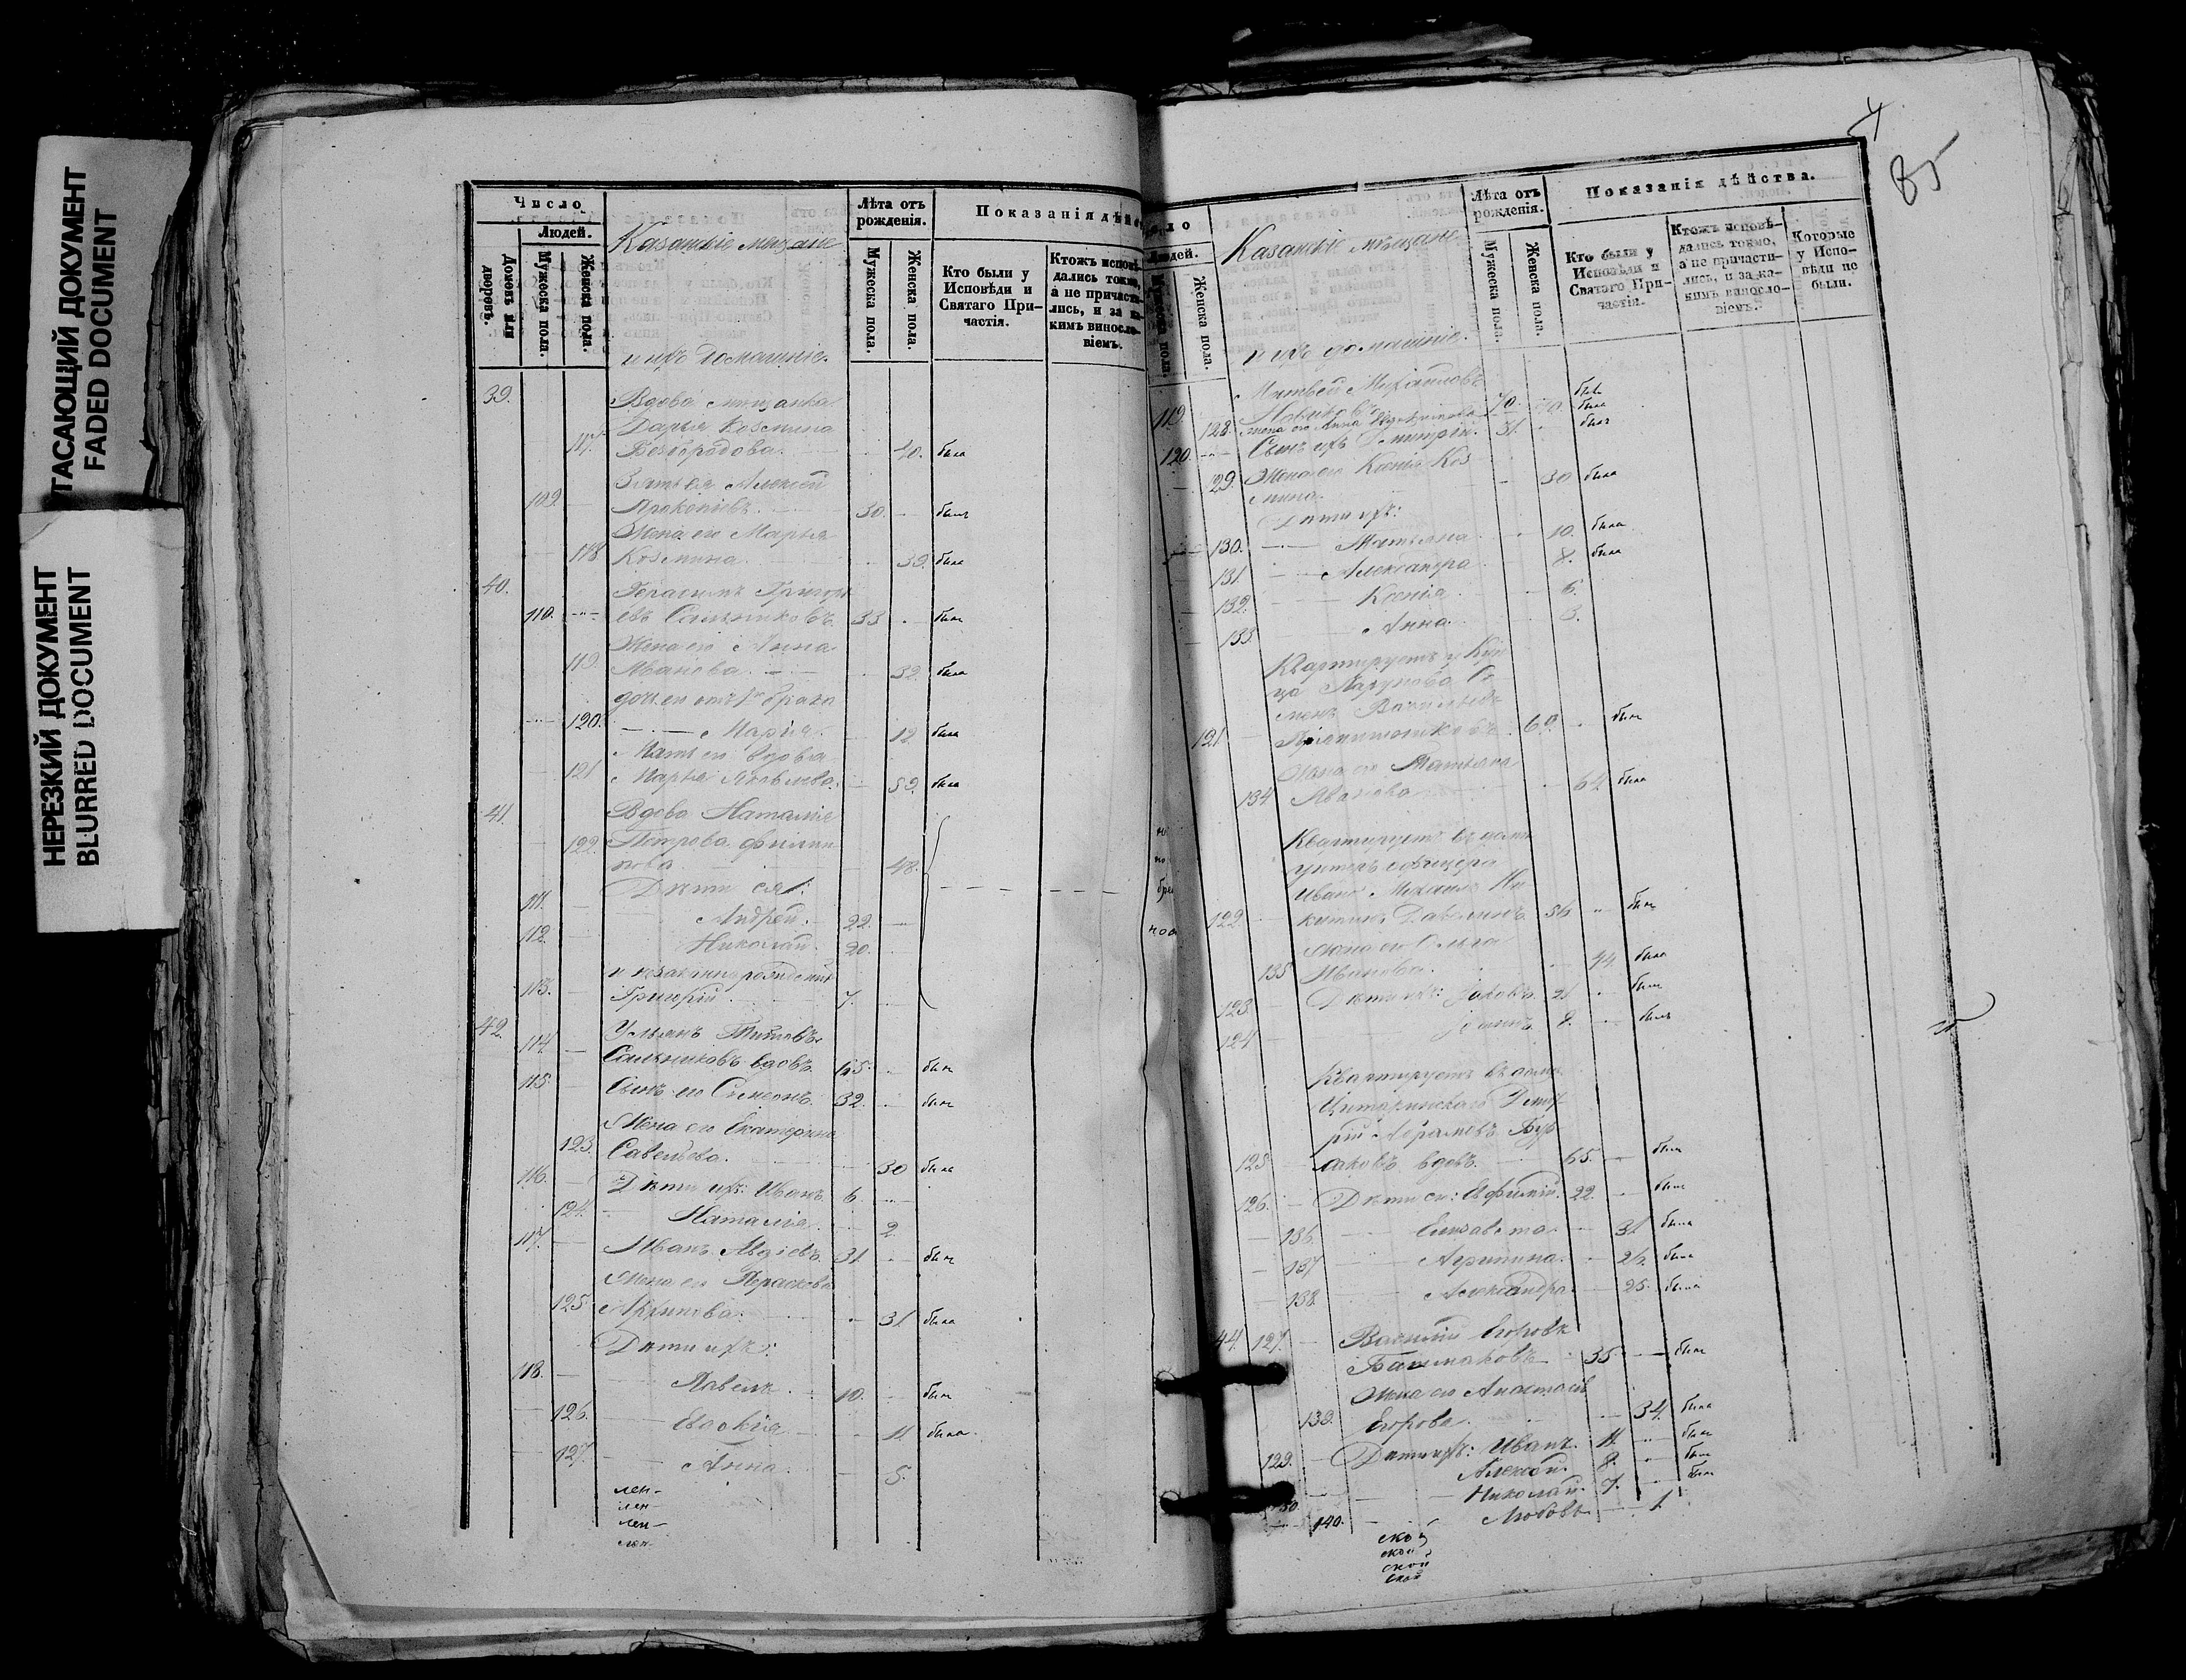 УГАСАЮЩИЙ ДОКУМЕНТ
FADED DOCUMENT
НЕРЕЗКИЙ ДОКУМЕНТ
BLURRED DOCUMENT
Число
Людей.
Домовъ или дворовъ.
Мужеска пола.
Женска пола.
Казанскіе мещане
и ихъ домашніе.
Лѣта отъ рожденія.
Мужеска пола.
Женска пола.
Показанія дѣйс
Кто были у
Исповѣди и
Святаго При-
частія.
Ктожъ исповѣ-
дались токмо,
а не причасти-
лись, и за ка-
кимъ винosло-
віемъ.
39. Вдова мещанка
Дарья Козмина
117. Безбородова. 40. была
Зять ея Алексей
109. Прокопіевъ. 30. былъ
Жена его Марья
118 Козмина. 39. была
40. Герасимъ Григорь
110. евъ Сальниковъ 33 былъ
Жена его Анна
119. Иванова 32. была
дочь его отъ 1го брака
120. Марія. 12 была
Мать его вдова
121 Марья Яковлева. 59. была
41. Вдова Наталія
122. Петрова Филип
пова 48.
Дѣти ея:
111. Андрей. 22.
112. Николай. 20.
и незаконнорожденный
113. Григорій. 7.
42. Ульянъ Титовъ
114. Сальниковъ вдовъ. 65. былъ
115 Сынъ его Симеонъ. 32. былъ
Жена его Екатерина
123. Савельева. 30 была
116. Дѣти ихъ: Иванъ 6.
124. Наталія. 2.
117. Иванъ Авдіевъ 31 былъ
Жена его Парасковья
125. Архипова. 31. была
Дѣти ихъ:
118. Павелъ 10. былъ
126. Евдокія 11. была
127. Анна 5.
лен-
лен-
лен-
лен-
4
85
Людей.
Женска пола.
Казанскіе мѣщане
и ихъ домашніе.
Лѣта отъ рожденія.
Мужеска пола.
Женска пола.
Показанія дѣйства.
Кто были у
Исповѣди и
Святаго При-
частія.
Ктожъ исповѣ-
дались токмо,
а не причасти-
лись, и за ка-
кимъ винosло-
віемъ.
Которые
у Испо-
вѣди не
были.
Матвей Михайловъ
119. 70. былъ
128. жена его Анна 70. была
120. Сынъ ихъ Димитрій. 31. былъ
129. Жена его Ксенія Коз
мина. 30 была
Дѣти ихъ:
130. Татьяна 10. была
131. Александра 8. была
132. Ксенія 6.
133. Анна 3.
Квартируетъ у Куп
ца Ларунова Се
менъ Васильевъ
121 69. былъ
Жена его Татьяна
134 Иванова 64 была
Квартируетъ въ домѣ
унтеръ офицера
Ивана Михаилъ Ни
122 китинъ 56 былъ
Жена его Ольга
135 Иванова. 44. была
123. Дѣти ихъ: Іаковъ. 21 былъ
124 Іоаннъ 8. былъ
Квартируетъ въ домѣ
Димит
рій Абрамовъ Бур
125 лаковъ вдовъ. 65. былъ
126. Дѣти его: Евфимій. 22. былъ
136. Елизавета 31 была
137 Агрипина. 26. была
138 Александра 25. была
44. 127. Василій Егоровъ
Башмаковъ 35 былъ
Жена его Анастасія
139. Егорова. 34. была
129. Дѣти ихъ: Иванъ. 11. былъ
Алексей. 8. былъ
130. Николай. 7. былъ
140. Любовь 1.
ской
ской
ской
ской